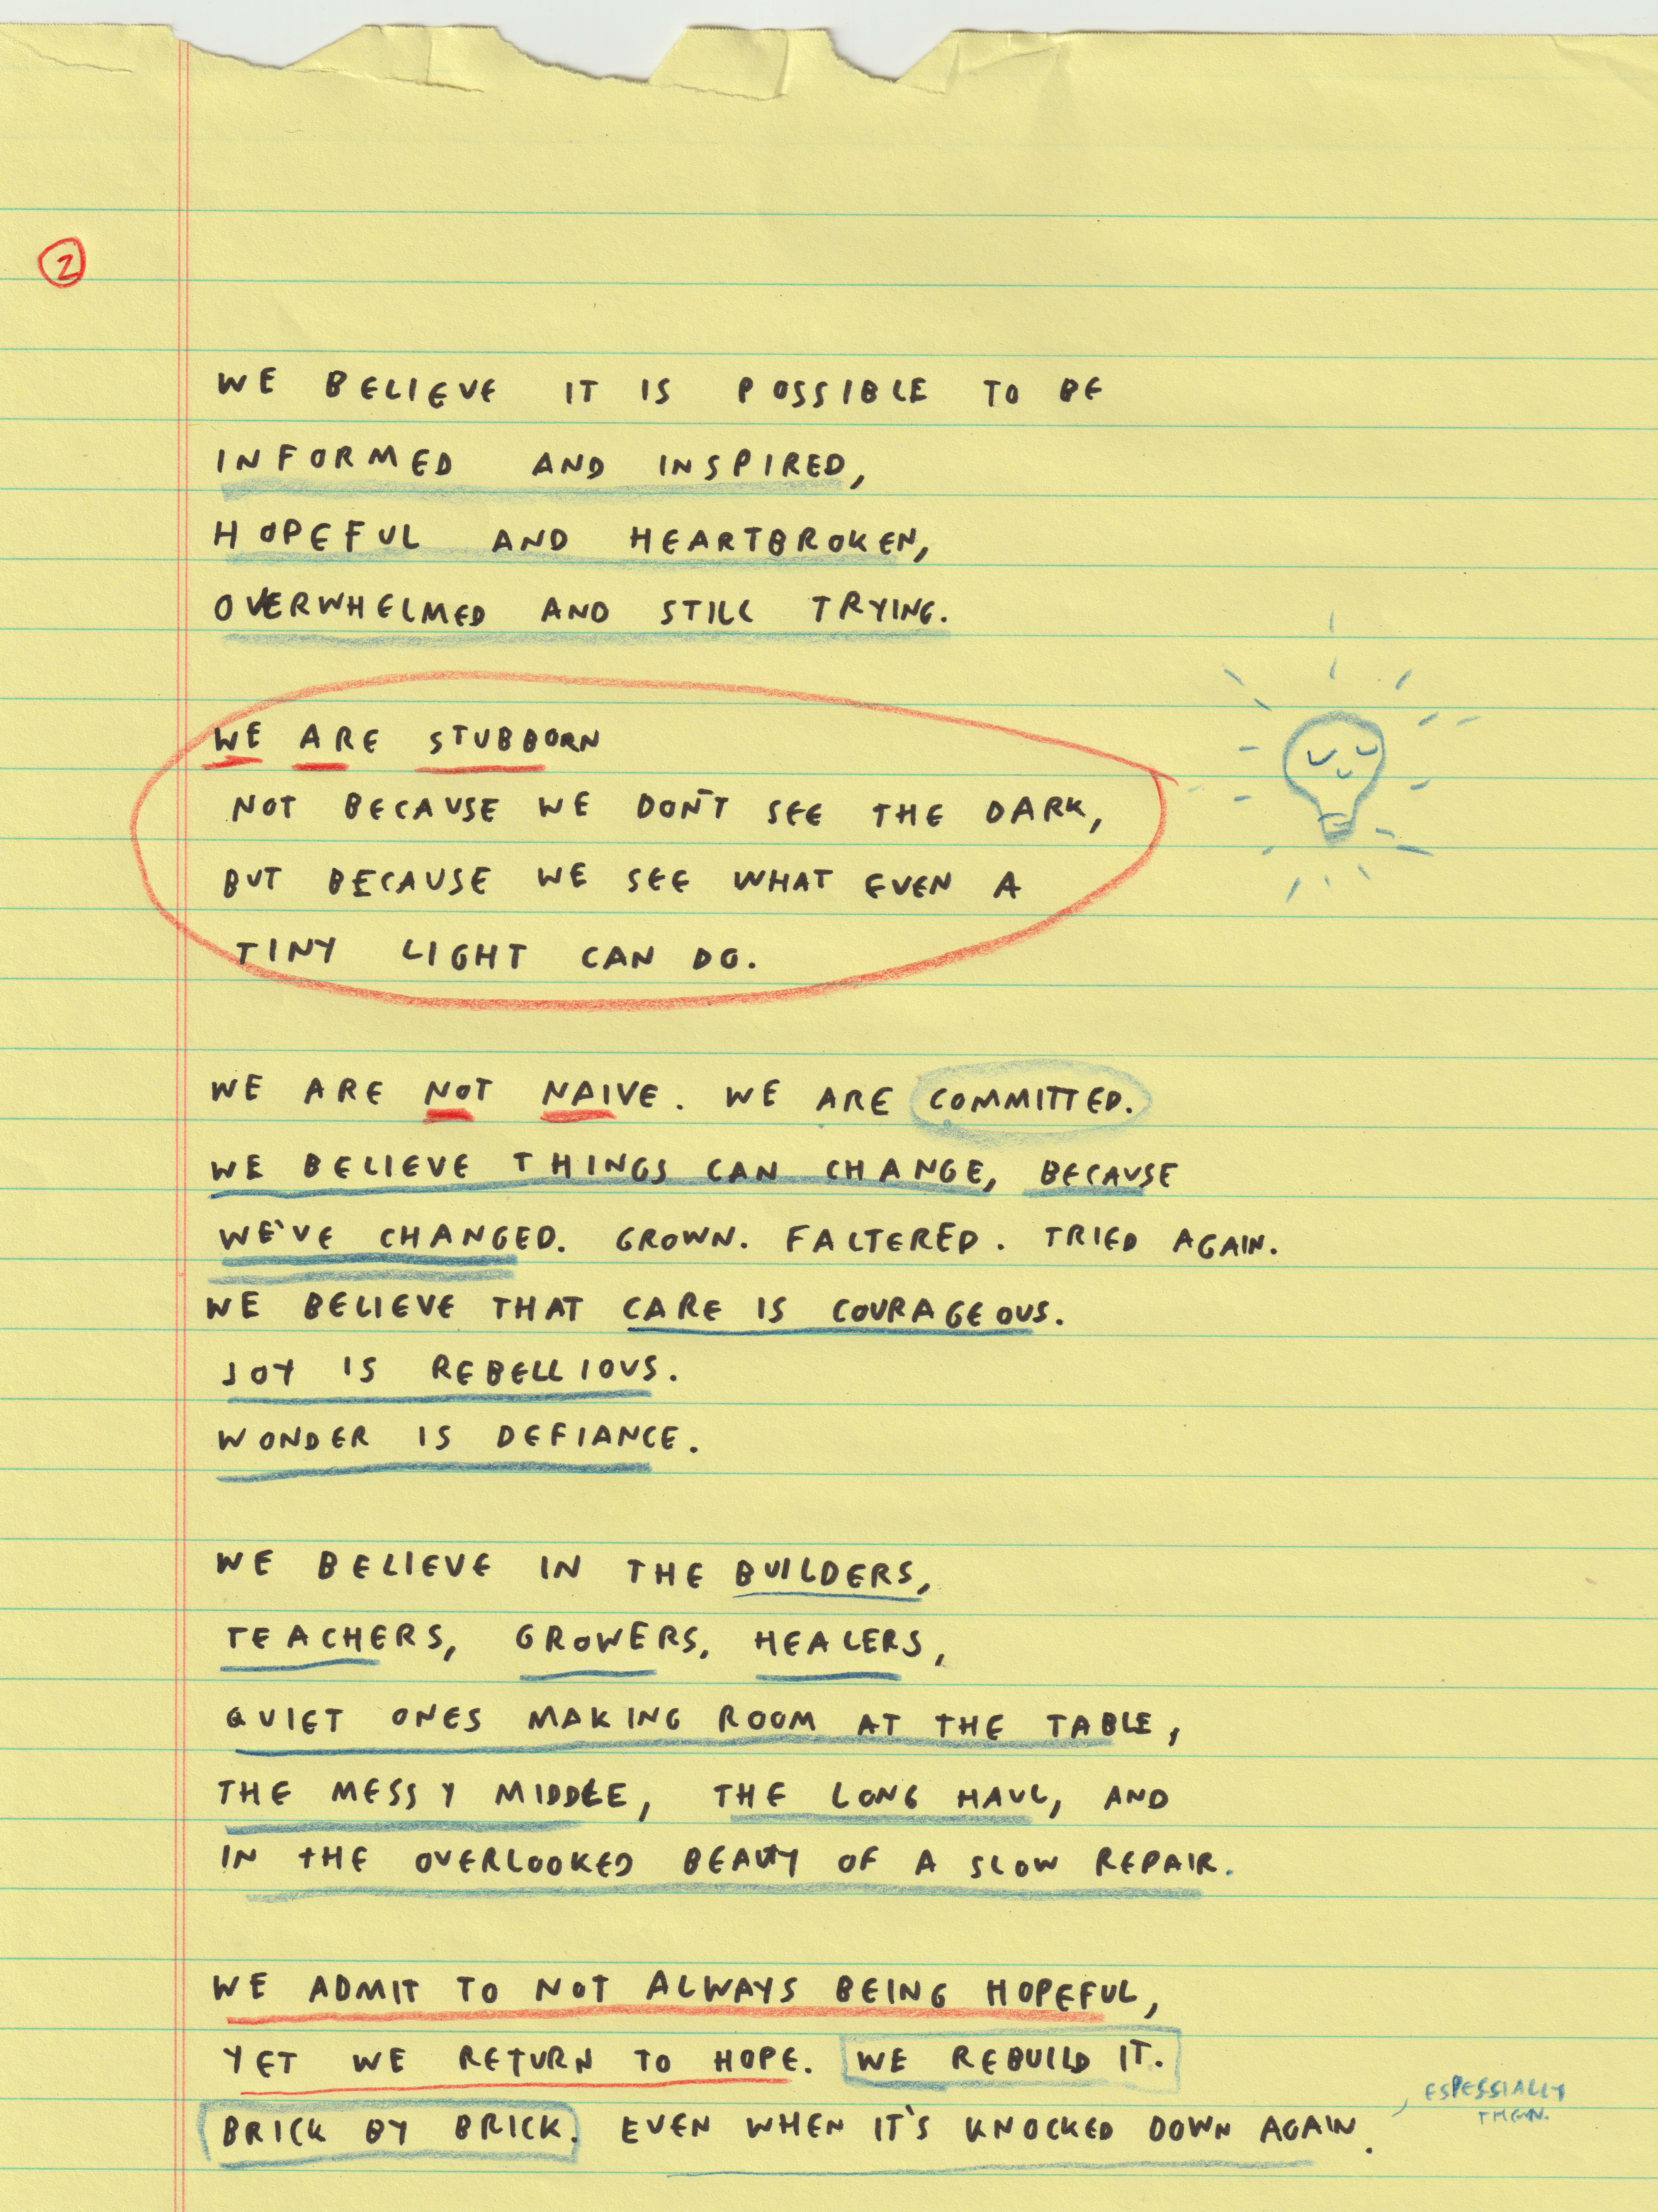 2
WE BELIEVE IT IS POSSIBLE TO BE
INFORMED AND INSPIRED,
HOPEFUL AND HEARTBROKEN,
OVERWHELMED AND STILL TRYING.
WE ARE STUBBORN
NOT BECAUSE WE DON'T SEE THE DARK,
BUT BECAUSE WE SEE WHAT EVEN A
TINY LIGHT CAN DO.
WE ARE NOT NAIVE. WE ARE COMMITTED.
WE BELIEVE THINGS CAN CHANGE, BECAUSE
WE'VE CHANGED. GROWN. FALTERED. TRIED AGAIN.
WE BELIEVE THAT CARE IS COURAGEOUS.
JOY IS REBELLIOUS.
WONDER IS DEFIANCE.
WE BELIEVE IN THE BUILDERS,
TEACHERS, GROWERS, HEALERS,
QUIET ONES MAKING ROOM AT THE TABLE,
THE MESSY MIDDLE, THE LONG HAUL, AND
IN THE OVERLOOKED BEAUTY OF A SLOW REPAIR.
WE ADMIT TO NOT ALWAYS BEING HOPEFUL,
YET WE RETURN TO HOPE. WE REBUILD IT.
BRICK BY BRICK. EVEN WHEN IT'S KNOCKED DOWN AGAIN.
, ESPESSIALLY
THEN.